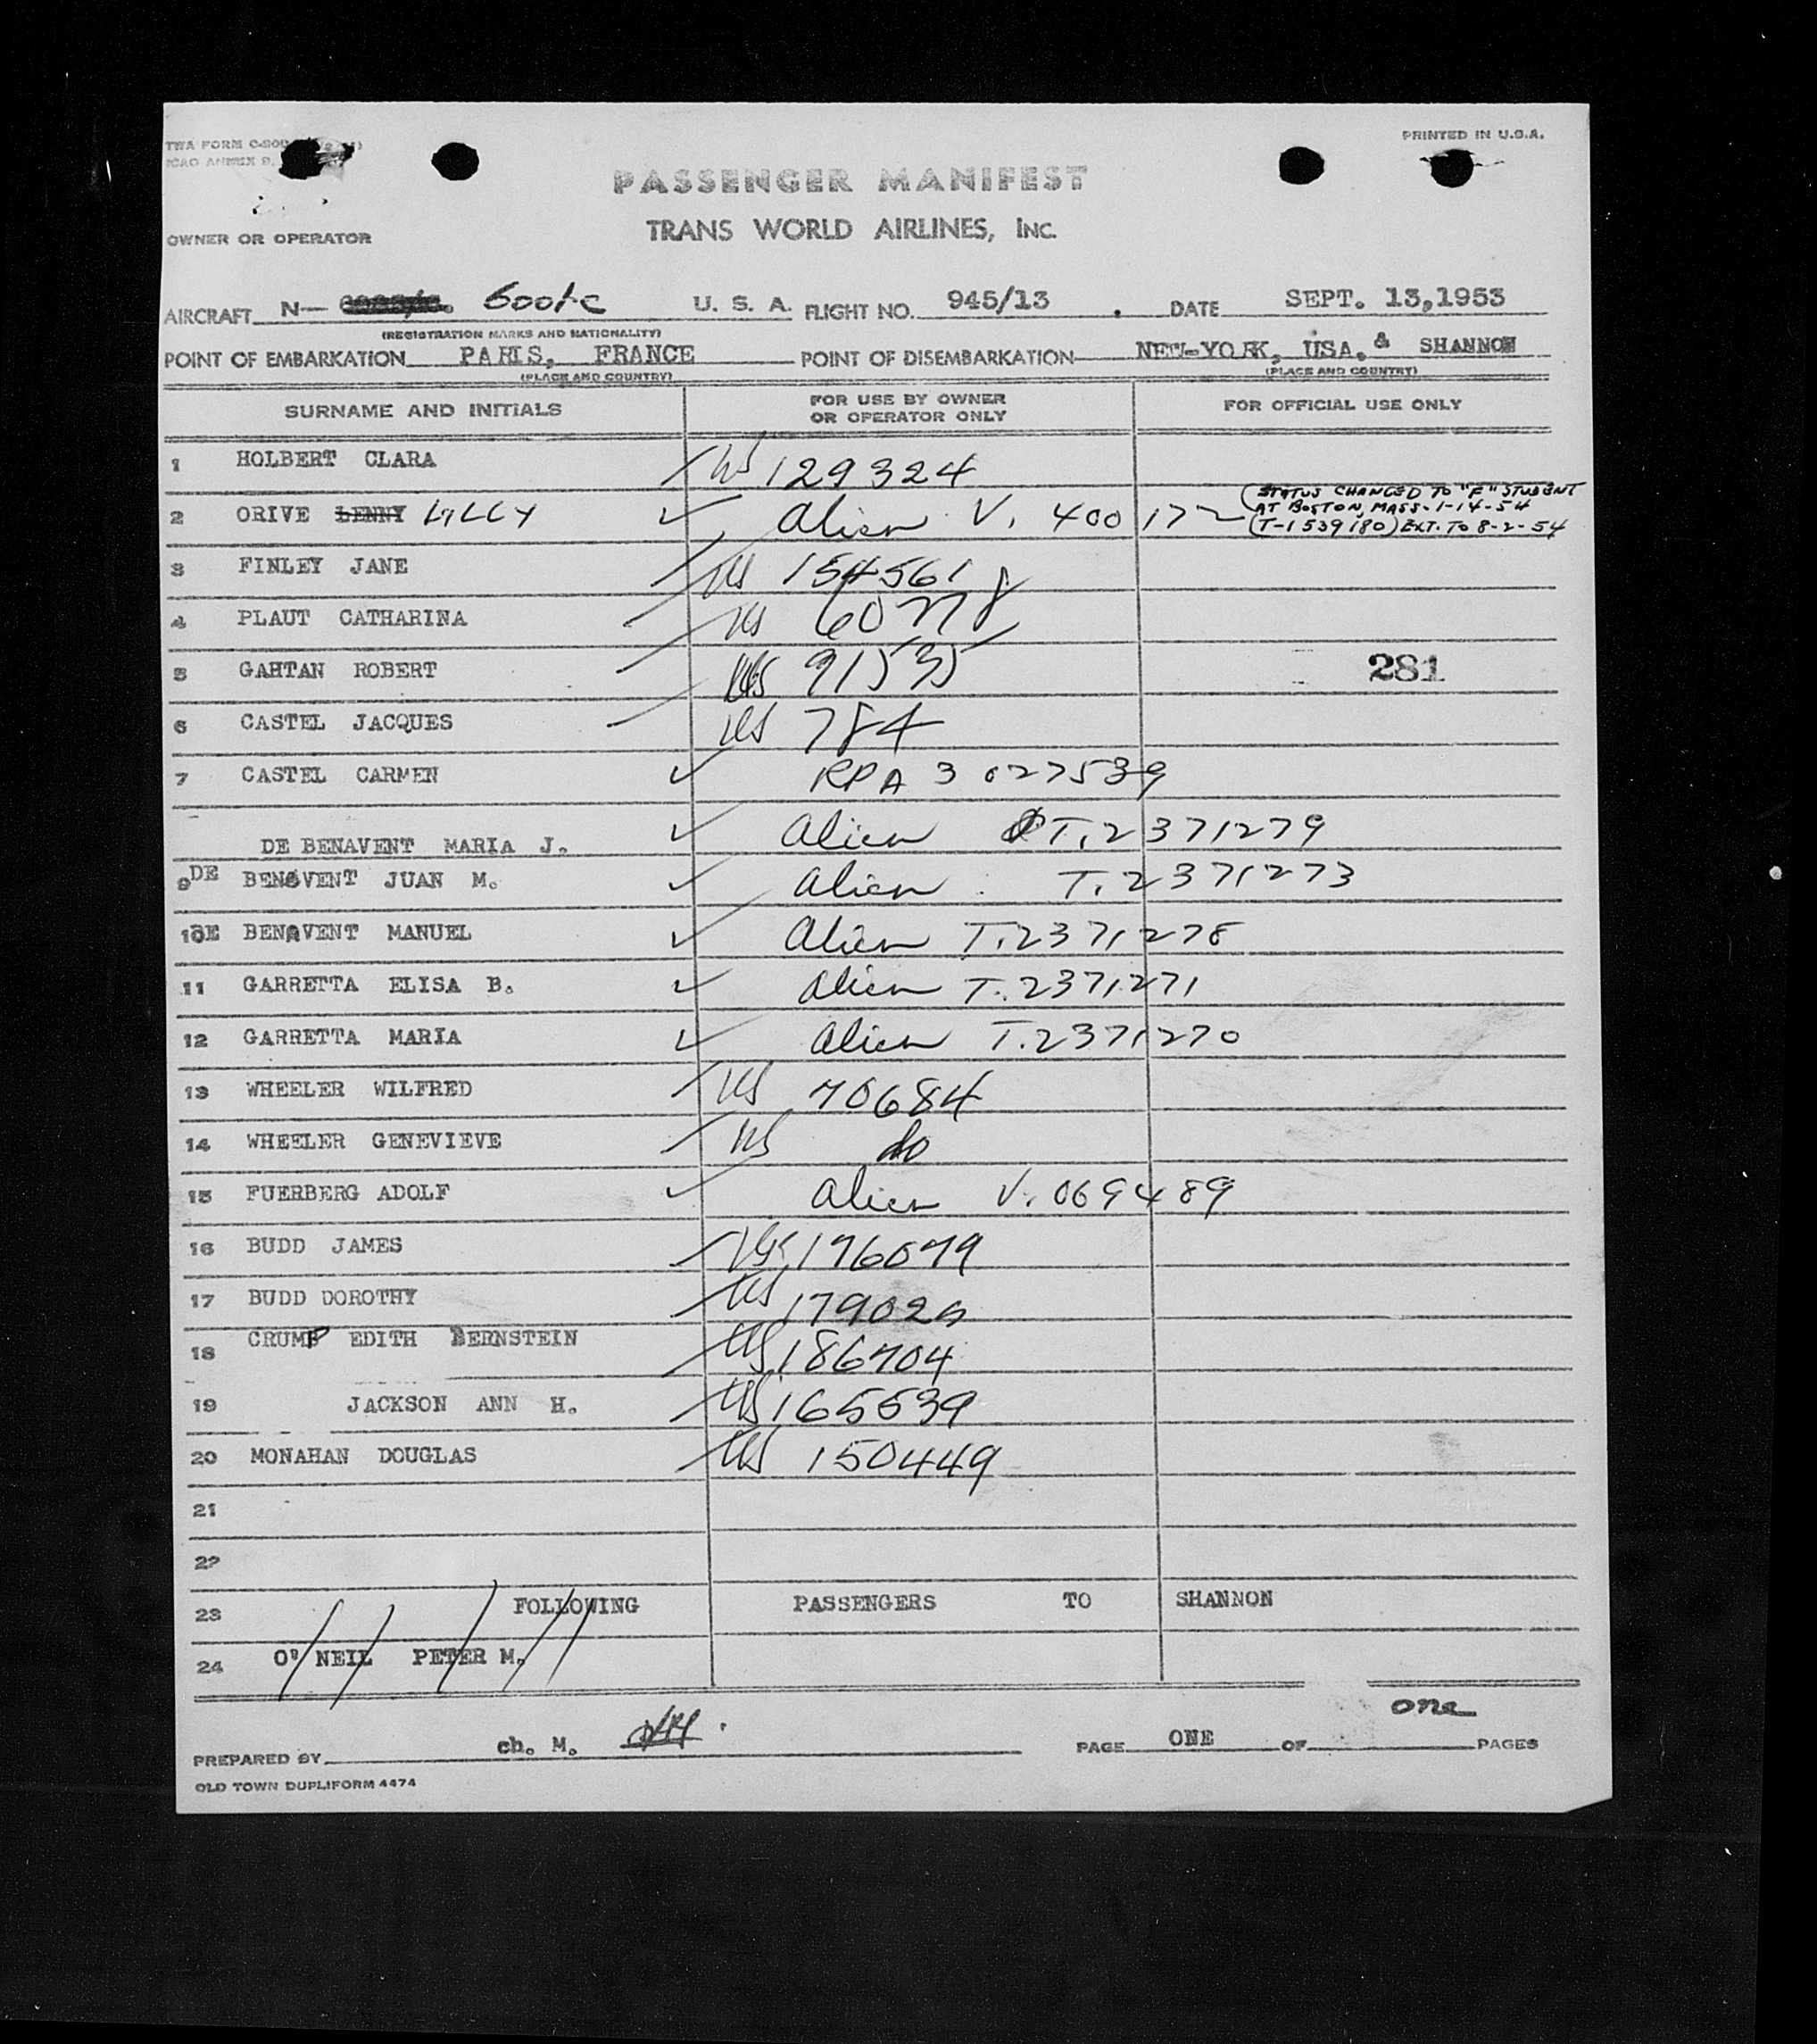 PRINTED IN U.S.A.
TWA FORM
ICAO ANNEX 9,
PASSENGER MANIFEST
TRANS WORLD AIRLINES, INC.
OWNER OR OPERATOR
AIRCRAFT N— 6001-C U. S. A. FLIGHT NO. 945/13 . DATE SEPT. 13,1953
(REGISTRATION MARKS AND NATIONALITY)
POINT OF EMBARKATION PARIS, FRANCE POINT OF DISEMBARKATION NEW-YORK, USA. & SHANNON
(PLACE AND COUNTRY) (PLACE AND COUNTRY)
SURNAME AND INITIALS FOR USE BY OWNER OR OPERATOR ONLY FOR OFFICIAL USE ONLY
1 HOLBERT CLARA US 129324
2 ORIVE LENNY LILLY Alien V. 400172 (STATUS CHANGED TO "F" STUDENT
AT BOSTON, MASS-1-14-54
(T-1539180) EXT. TO 8-2-54
3 FINLEY JANE US 154561
4 PLAUT CATHARINA US 60778
5 GAHTAN ROBERT US 91535 281
6 CASTEL JACQUES US 784
7 CASTEL CARMEN RPA 3 027539
DE BENAVENT MARIA J. Alien T.2371279
9 DE BENAVENT JUAN M. Alien T.2371273
10 DE BENAVENT MANUEL Alien T.2371278
11 GARRETTA ELISA B. Alien T.2371271
12 GARRETTA MARIA Alien T.2371270
13 WHEELER WILFRED US 70684
14 WHEELER GENEVIEVE US do
15 FUERBERG ADOLF Alien V.069489
16 BUDD JAMES US 176079
17 BUDD DOROTHY US
18 CRUMP EDITH BERNSTEIN US 186704
19 JACKSON ANN H. US 165539
20 MONAHAN DOUGLAS US 150449
21
22
23 FOLLOWING PASSENGERS TO SHANNON
24 O' NEIL PETER M.
PREPARED BY ch. M. PAGE ONE OF one PAGES
OLD TOWN DUPLIFORM 4474